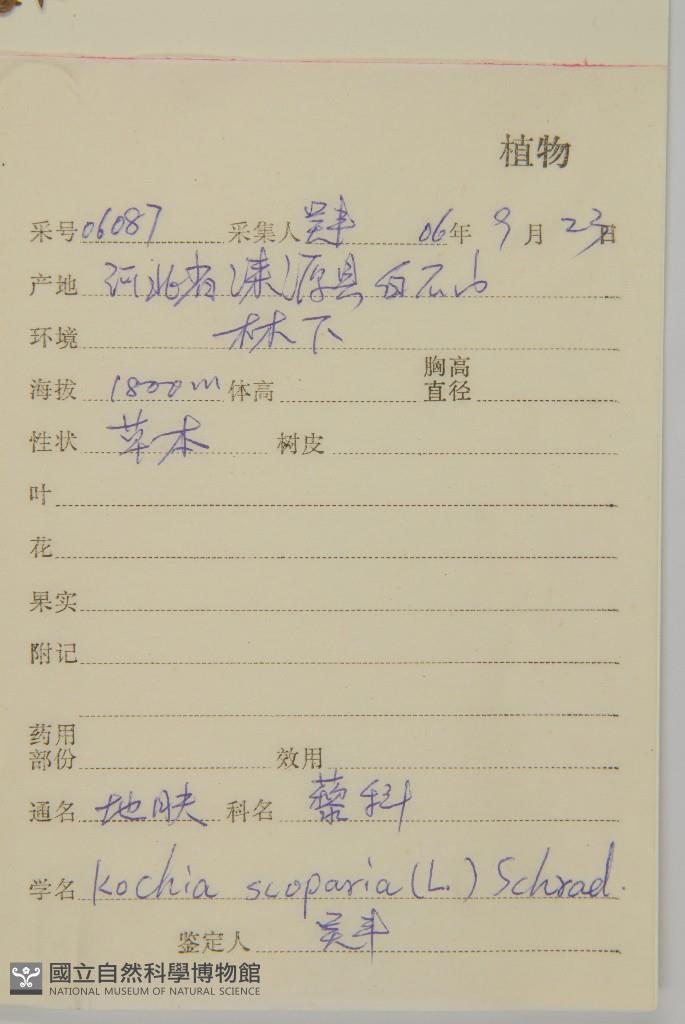 植物
采号 06087 采集人 吴丰 06年 9月 23日
产地 河北省涞源县白石山
环境 林下
海拔 1800m 体高 胸高直径
性状 草本 树皮
叶
花
果实
附记
药用部份 效用
通名 地肤 科名 藜科
学名 Kochia scoparia (L.) Schrad.
鉴定人 吴丰
國立自然科學博物館
NATIONAL MUSEUM OF NATURAL SCIENCE